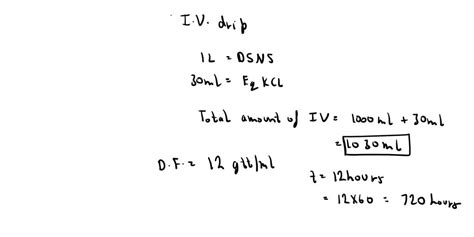 I.V. drip
1L = D5NS
30ml = Eq KCL
Total amount of IV = 1000ml + 30ml
= 1030ml
D.F. = 12 gtt/ml
t = 12hours
= 12x60 = 720 hours